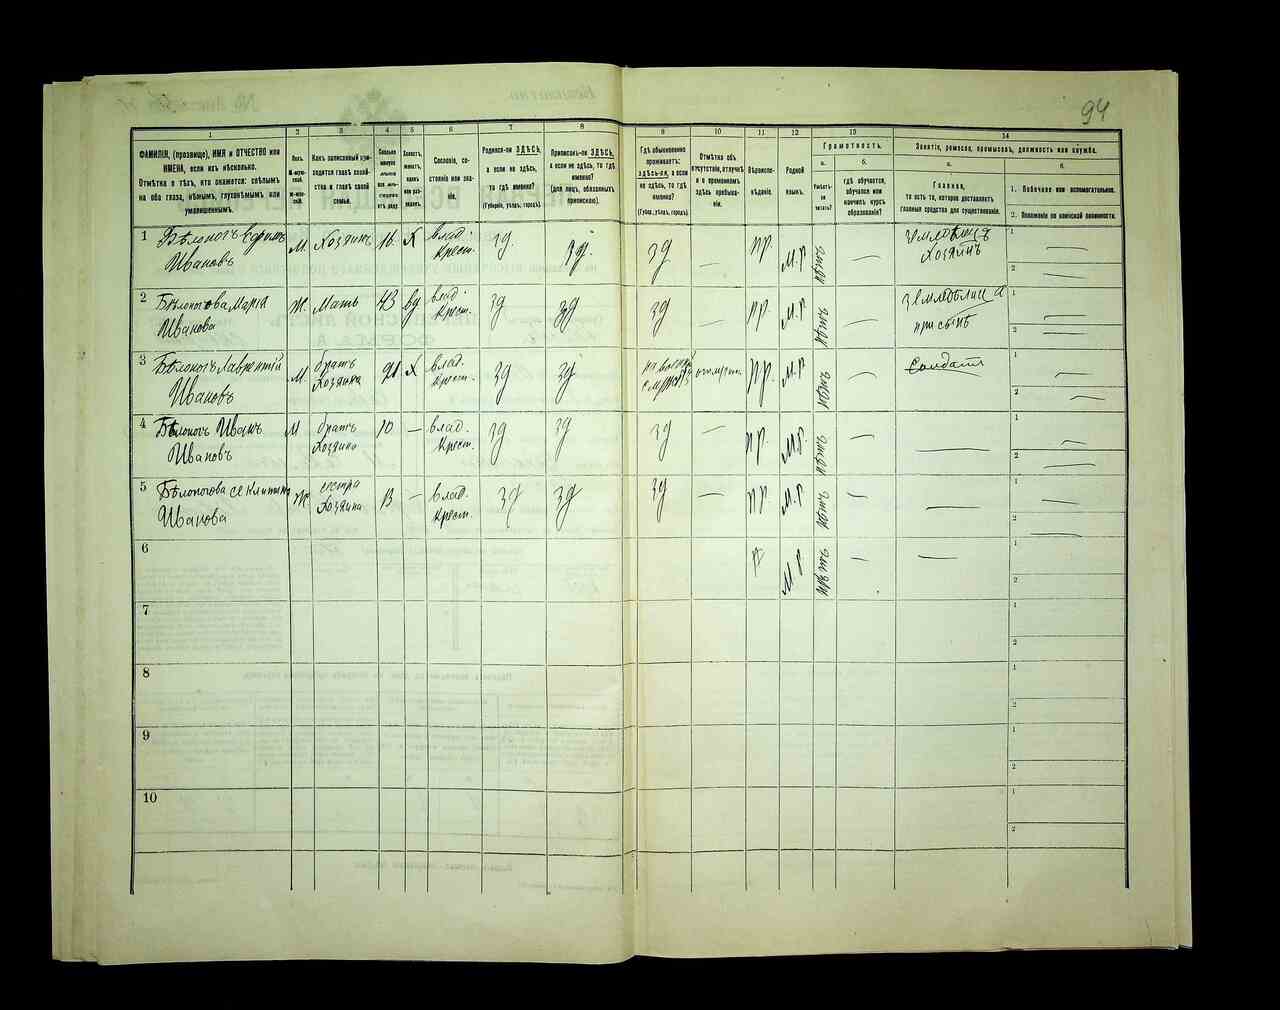 94
1 2 3 4 5 6 7 8 9 10 11 12 13 14
ФАМИЛІЯ, (прозвище), ИМЯ и ОТЧЕСТВО или
ИМЕНА, если ихъ нѣсколько.
Отмѣтка о тѣхъ, кто окажется: слѣпымъ
на оба глаза, нѣмымъ, глухонѣмымъ или
умалишеннымъ.
Полъ.
Какъ записанный при-
ходится главѣ хозяй-
ства и главѣ своей
семьи.
Сословіе, со-
стояніе или зва-
ніе.
Родился-ли ЗДѢСЬ,
а если не здѣсь,
то гдѣ именно?
(Губернія, уѣздъ, городъ).
Приписанъ-ли ЗДѢСЬ,
а если не здѣсь, то гдѣ
именно?
(Для лицъ, обязанныхъ
припискою).
Гдѣ обыкновенно
проживаетъ:
здѣсь-ли, а если
не здѣсь, то гдѣ
именно?
(Губ., уѣздъ, городъ).
Отмѣтка объ
отсутствіи, отлучкѣ
и о временномъ
здѣсь пребыва-
ніи.
Вѣроиспо-
вѣданіе.
Родной
языкъ.
Грамотность.
а.
Умѣетъ-
ли
читать?
б.
гдѣ обучается,
обучался или
кончилъ курсъ
образованія?
Занятіе, ремесло, промыселъ, должность или служба.
а.
Главное,
то есть то, которое доставляетъ
главныя средства для существованія.
б.
1. Побочное или вспомогательное.
2. Положеніе по воинской повинности.
1 Бѣлоногъ Ефимъ М. Хозяинъ 16 Х влад. зд. зд. зд — пр. м.р. — 1 —
Ивановъ крест. Хозяинъ 2 —
2 Бѣлоногова Марія Ж. Мать 43 вд влад. зд зд зд — пр. м.р. — 1 —
Иванова крест. при сынѣ 2 —
3 Бѣлоногъ Лаврентій М. братъ 21 Х влад. зд зд пр. м.р. — Солдатъ 1 —
Ивановъ Хозяина крест. 2 —
4 Бѣлоногъ Иванъ М братъ 10 — влад. зд зд зд — пр. м.р. — — 1 —
Ивановъ Хозяина крест. 2 —
5 Бѣлоногова М. сестра 13 — влад. зд зд зд — пр м.р — — 1 —
Иванова Хозяина крест. 2 —
6 м р — — 1
2
7 1
2
8 1
2
9 1
2
10 1
2